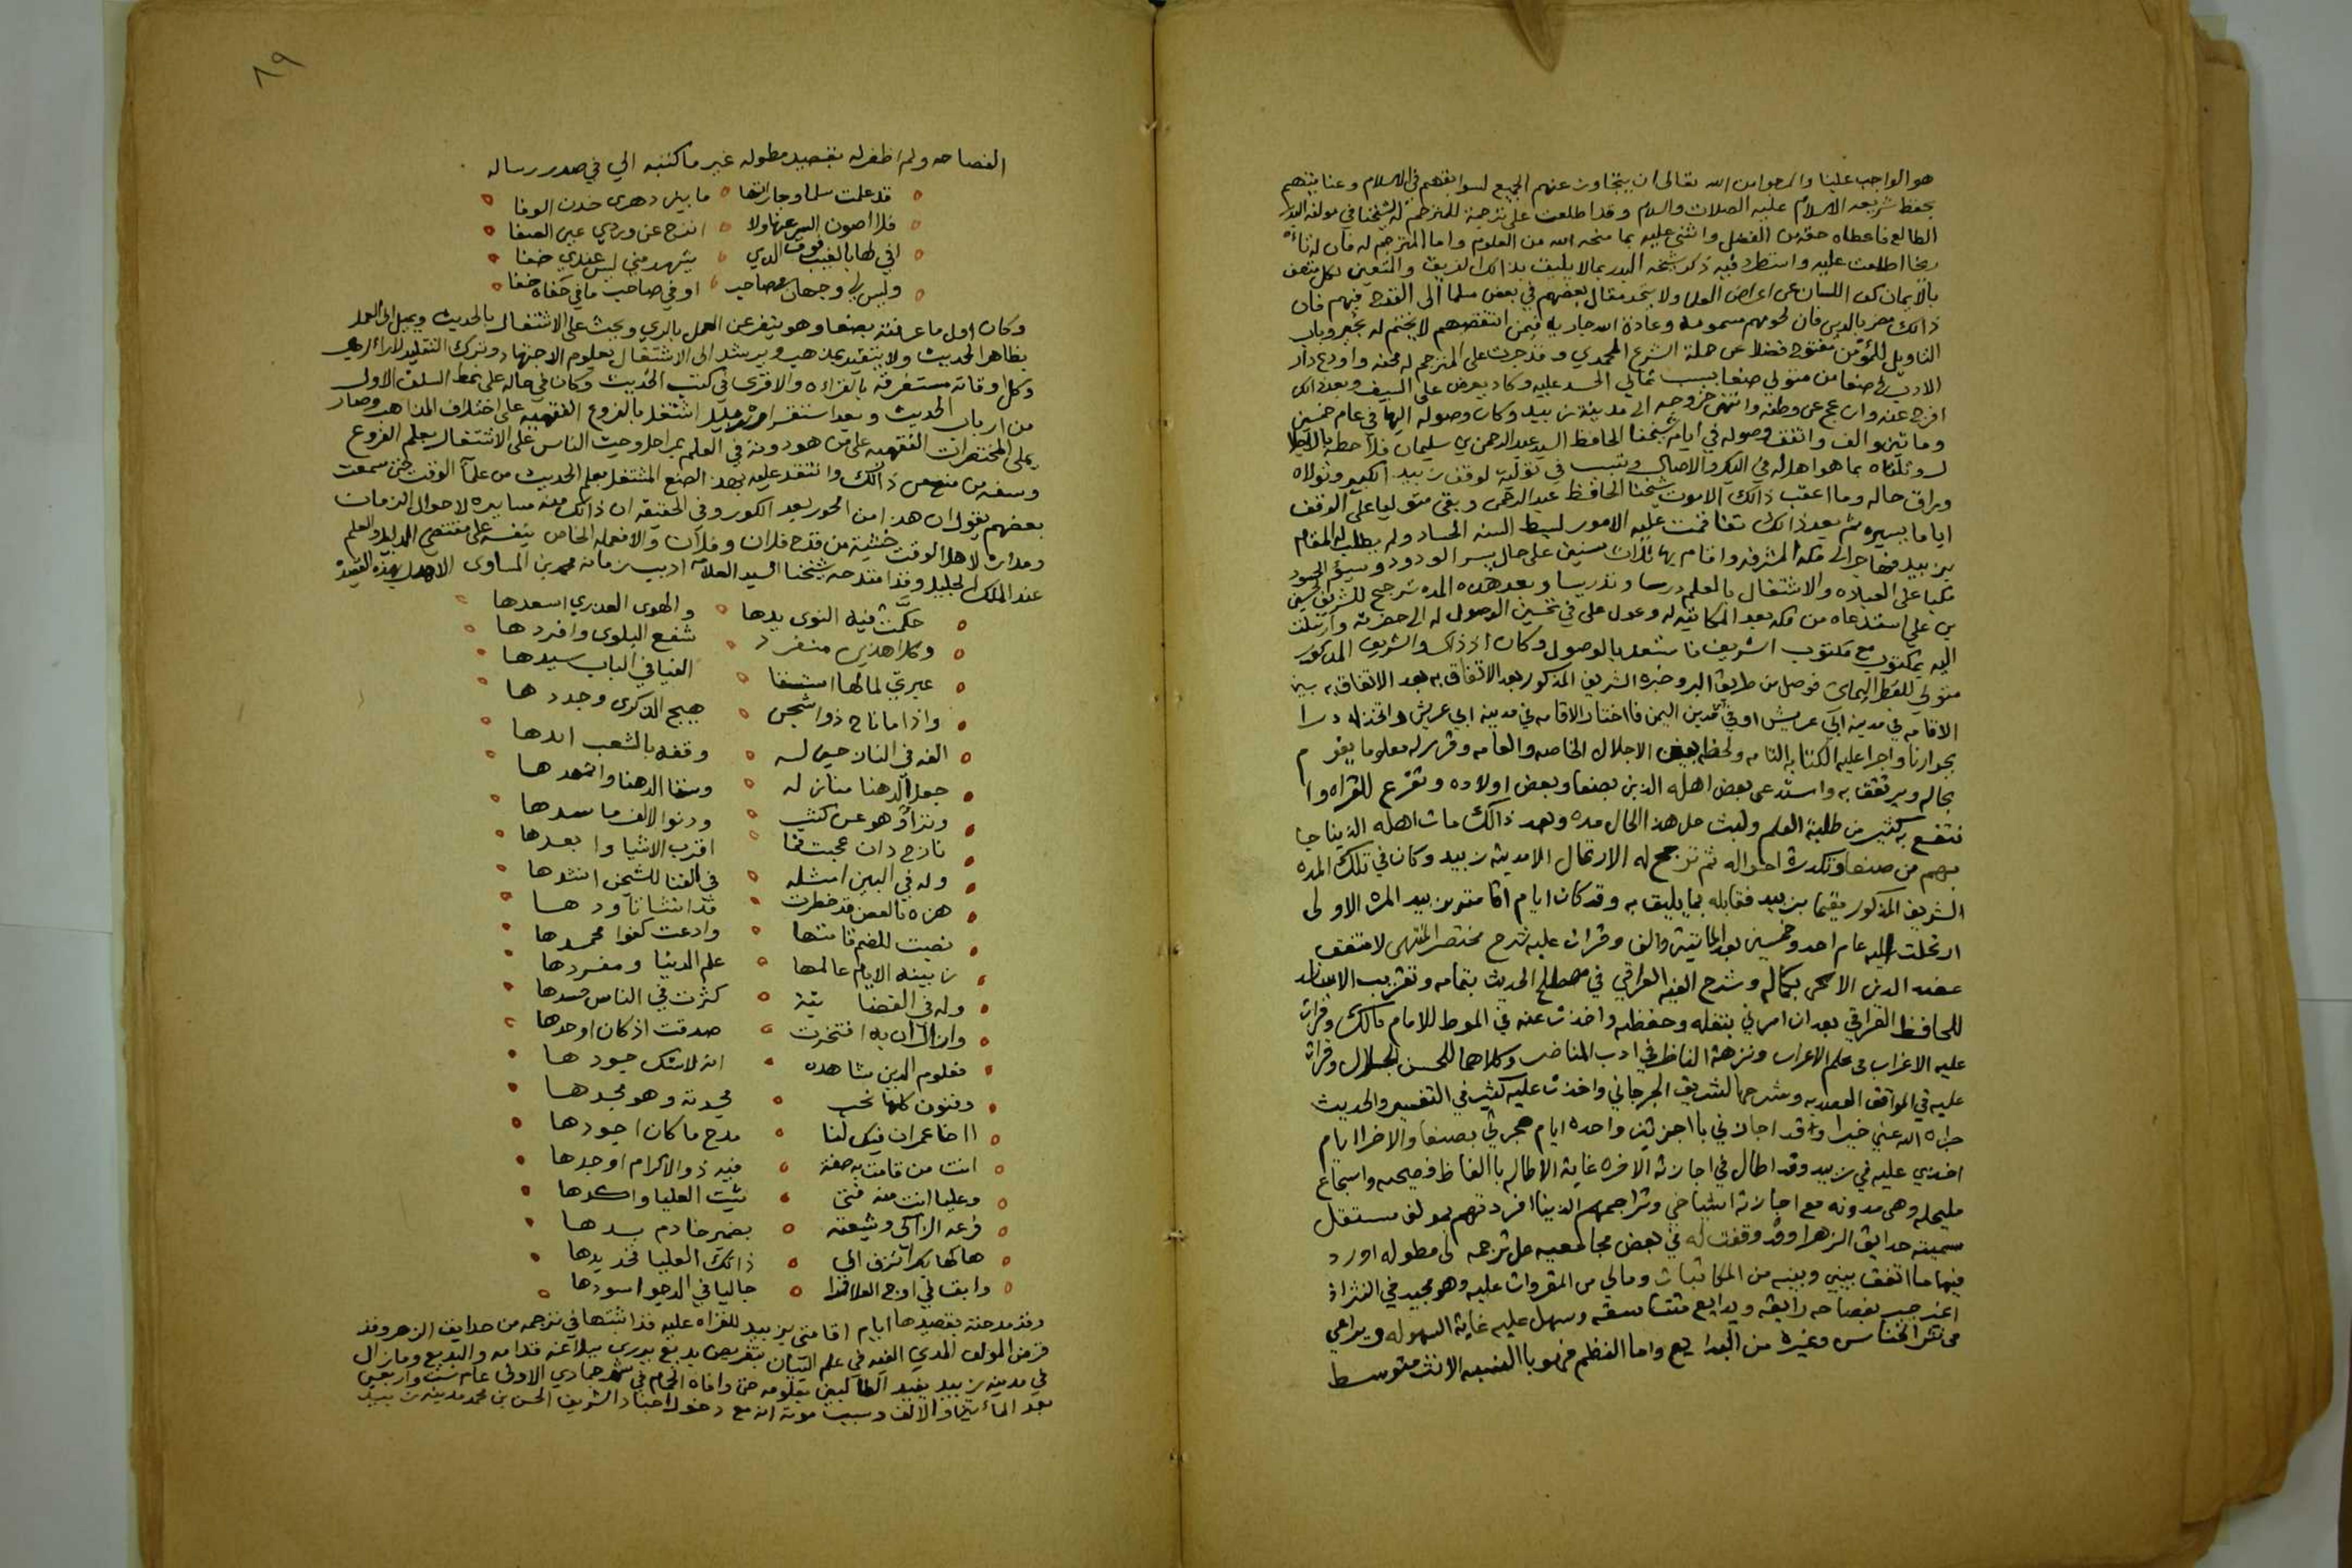 هو الواجب علينا والمرجو من الله تعالى ان يتجاوز عنهم الجميع لسوابقهم في الاسلام وعنايتهم
بحفظ شريعه الاسلام عليه الصلات والسلام وقد اطلعت على ترجمة للمترجم له لشيخنا في مولفه البدر
الطالع فاعطاه حقه من الفضل واثنى عليه بما منحه الله من العلوم واما المترجم له فان له
اطلعت عليه واستطرد فيه ذكر شيخه البدر بما لا يليق بذالك الفريق والمتعين لكل متصف
بالايمان كف اللسان عن اعراض العلما ولا يتخذ مقال بعضهم في بعض سلما الى القدح فيهم فان
ذالك مضر بالدين فان لحومهم مسمومه وعادة الله جاريه فيمن انتقصهم لا يختم له بخير وباب
التاويل للمؤمن مفتوح فضلا عن حملة الشرع المحمدي وقد جرت على المترجم له محنه واودع دار
الادب في صنعا من متولي صنعا بسبب تمالي الحسد عليه وكاد يعرض على السيف وبعد ذالك
افرج عنه وازعج عن وطنه وانتهى خروجه الى مدينة زبيد وكان وصوله اليها في عام خمسين
وماتين والف واتفق وصوله في ايام شيخنا الحافظ السيد عبد الرحمن بن سليمان فلاحظه
وتلقاه بما هو اهله في البكر والاصال وتسبب في توليته لوقف زبيد الكبير وتولاه
وراق حاله وما اعقب ذالك الا موت شيخنا الحافظ عبد الرحمن وبقي متوليا على الوقف
اياما يسيره ثم بعد ذالك تفاقمت عليه الامور لبسط السنة الحساد ولم يطلب له المقام
بزبيد فهاجر الى مكه المشرفه واقام بها ثلاث سنين على حال يسر الودود ويسؤ الحسود
مكبا على العباده والاشتغال بالعلم درسا وتدريسا وبعد هذه المده ترجح للشريف حسين
بن علي استدعاه من مكه بعد المكاتبه له وعول علي في تحسين الوصول له الى حضرته وارسلت
اليه بمكتوب مع مكتوب الشريف فاسعد بالوصول وكان اذ ذاك والشريف المذكور
متولي للقطر اليماني فوصل من طريق البر وخيره الشريف المذكور بعد الاتفاق به بعد الاتفاق به بين
الاقامه في مدينة ابي عريش او في مدن اليمن فاختار الاقامه في مدينه ابي عريش واتخذ له دارا
بجوارنا واجرا عليه الكفايه التامه ولحظه بعين الاجلال الخاصه والعامه وقرر له معلوما يقوم
بحاله ويرتفق به واستدعى بعض اهله الذين بصنعا وبعض اولاده وتفرع للقراه وا
نتفع به كثير من طلبة العلم ولبث على هذ الحال مده وبعد ذالك مات اهله الذين جا
بهم من صنعا وتكدرت احواله ثم ترجح له الارتحال الى مدينه زبيد وكان في تلك المده
الشريف المذكور مقيما بزبيد فقابله بما يليق به وقد كان ايام اقامته بزبيد المره الاولى
ارتحلت اليه عام احد وخمسين بعد المائتين والف وقرات عليه شرح مختصر المنتهى
عضد الدين الايجي بكماله وشرح الفيه العراقي في مصطلح الحديث بتمامه وتقريب الاسانيد
للحافظ العراقي بعد ان امرني بنقله وحفظه واخذت عنه في الموطا للامام مالك وقرات
عليه الاغراب في علم الاعراب ونزهة الناظر في ادب المناظر وكلاهما للحسن الجلال وقرات
عليه في المواقف العضديه وشرحها للشريف الجرجاني واخذت عليه كثير في التفسير والحديث
جزاه الله عني خيرا وقد اجازني بااجزتين واحده ايام هجرتي بصنعا والاخرا ايام
اخذي عليه في زبيد وقد اطال في اجازته الاخره غاية الاطاله باالفاظ فصيحه واسجاع
مليحه وهي مدونه مع اجازة اشياخي وتراجمهم الذين افردتهم بمولف مستقل
سميته حدايق الزهر وقد وقفت له في بعض مجاميعه على ترجمه لي مطوله اورد
فيها ما اتفق بيني وبينه من المكاتبات ومالي من المقروات عليه وهو مجيد في النثر اذ
بفصاحه رايقه وبدايع متناسقه وسهل عليه غاية السهوله ويراعي
وغيره من البدايع واما النظم فهو باالنسبه الا نثره متوسط
٨٩
الفصاحه ولم اظفر له بقصيده مطوله غير ما كتبه الي في صدر رساله
قد علمت سلما وجاراتها ما بين دهري خدن الوفا
فلا اصون السر عنها ولا انزح عن وردي عين الصفا
افي لها بالغيب فوق الذي يشهد مني ليس عندي خفا
وليس لي وجهان مع صاحب اوفي صاحب ما في خفاه خفا
وكان اول ما عرفته بصنعا وهو ينفر عن العمل بالري ويحث على الاشتغال بالحديث ويميل الى العمل
بظاهر الحديث ولا يتقيد بمذهب ويرشد الى الاشتغال بعلوم الاجتهاد وترك التقليد لاراء الرجال
وكل اوقاته مستغرقه بالقراءه والاقرى في كتب الحديث وكان في حاله على نمط السلف الاول
من ارباب الحديث وبعد استقراره بزبيد اشتغل بالفروع الفقهيه على اختلاف المذاهب وصار
يملي المختصرات الفقهيه على من هو دونه في العلم بمراحل وحث الناس على الاشتغال بعلم الفروع
وسفه من منع من ذالك وانتقد عليه بهذ الصنع المشتغل بعلم الحديث من علمآ الوقت حتى سمعت
بعضهم يقول ان هذ امن الحور بعد الكور وفي الحقيقه ان ذالك منه مسايره لاحوال الزمان
ومدارات لاهل الوقت خشية من قدح فلان وفلان والا فعمله الخاص بنفسه على مقتضى الدليل والعلم
عند الملك الجليل وقد امتدحه شيخنا السيد العلامه اديب زمانه محمد بن المساوى الاهدل بهذه القصيده
حكّمت فيه النوى يدها والهوى العذري اسعدها
وكلا هذين منفرد شفع البلوى وافردها
عبرتي لما لها الفيا في الباب سيدها
واذا ما ناح ذو اشجن هيج الذكرى وجددها
وقفه بالشعب
جعل الدهنا منازله وسقا الدهنا
وتراؤ هو عن كثب ودنوا الالف
نازح دان عجبت فما اقرب الاشيا وابعدها
وله في البين امثله في الفنا للشجن انشدها
هزه بالغصن قد خطرت قد انثنا تاودها
نصبت للضم قامتها وادعت كفوا محمدها
زينة الايام عالمها علم الدنيا ومفردها
وله في الفضا كثرت في الناس حسدها
وازال ان به افتخرت صدقت اذ كان اوحدها
فعلوم الدين شاهده انه لاشك جيودها
وفنون كلها نحب لمجدته وهو مجدها
ااخا عمران فيك لنا مدح ما كان اجودها
انت من قامت به صفة فيه ذو الاكرام اوجدها
وعليا انت منه فتى شيّت العليا واكدها
فرعه الزاكي وشيعته بضمير خادم يدها
هاكها بكر اتزف الى ذالك العليا فخذ يدها
وابق في اوج العلا قمرا جاليا في الدجو اسودها
وقد مدحته بقصيدها ايام اقامتي بزبيد للقراه عليه قد اثبتها في ترجمه من حدايق الزهر وقد
قرض المولف الذي الفته في علم البيان بتقريض بديع يزري ببلاغته قدامه والبديع وما زال
في مدينه زبيد يفيد الطالبين بعلومه حتى وافاه الحمام في شهر جمادي الاولى عام ست واربعين
بعد المأتين والالف وسبب موته انه مع دخول اجناد الشريف الحسن بن محمد مدينة زبيد